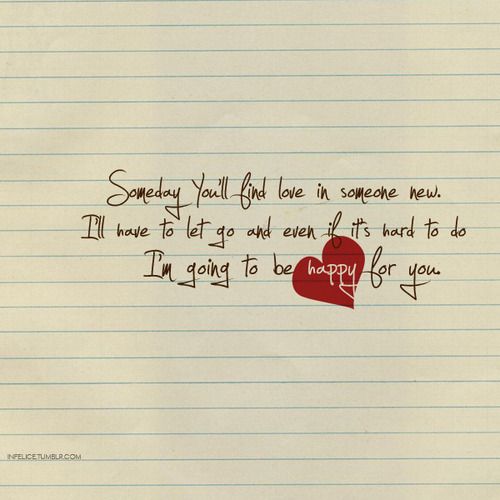 Someday You'll find love in someone new.
I'll have to let go and even if it's hard to do
I'm going to be happy for you.
INFELICE.TUMBLR.COM